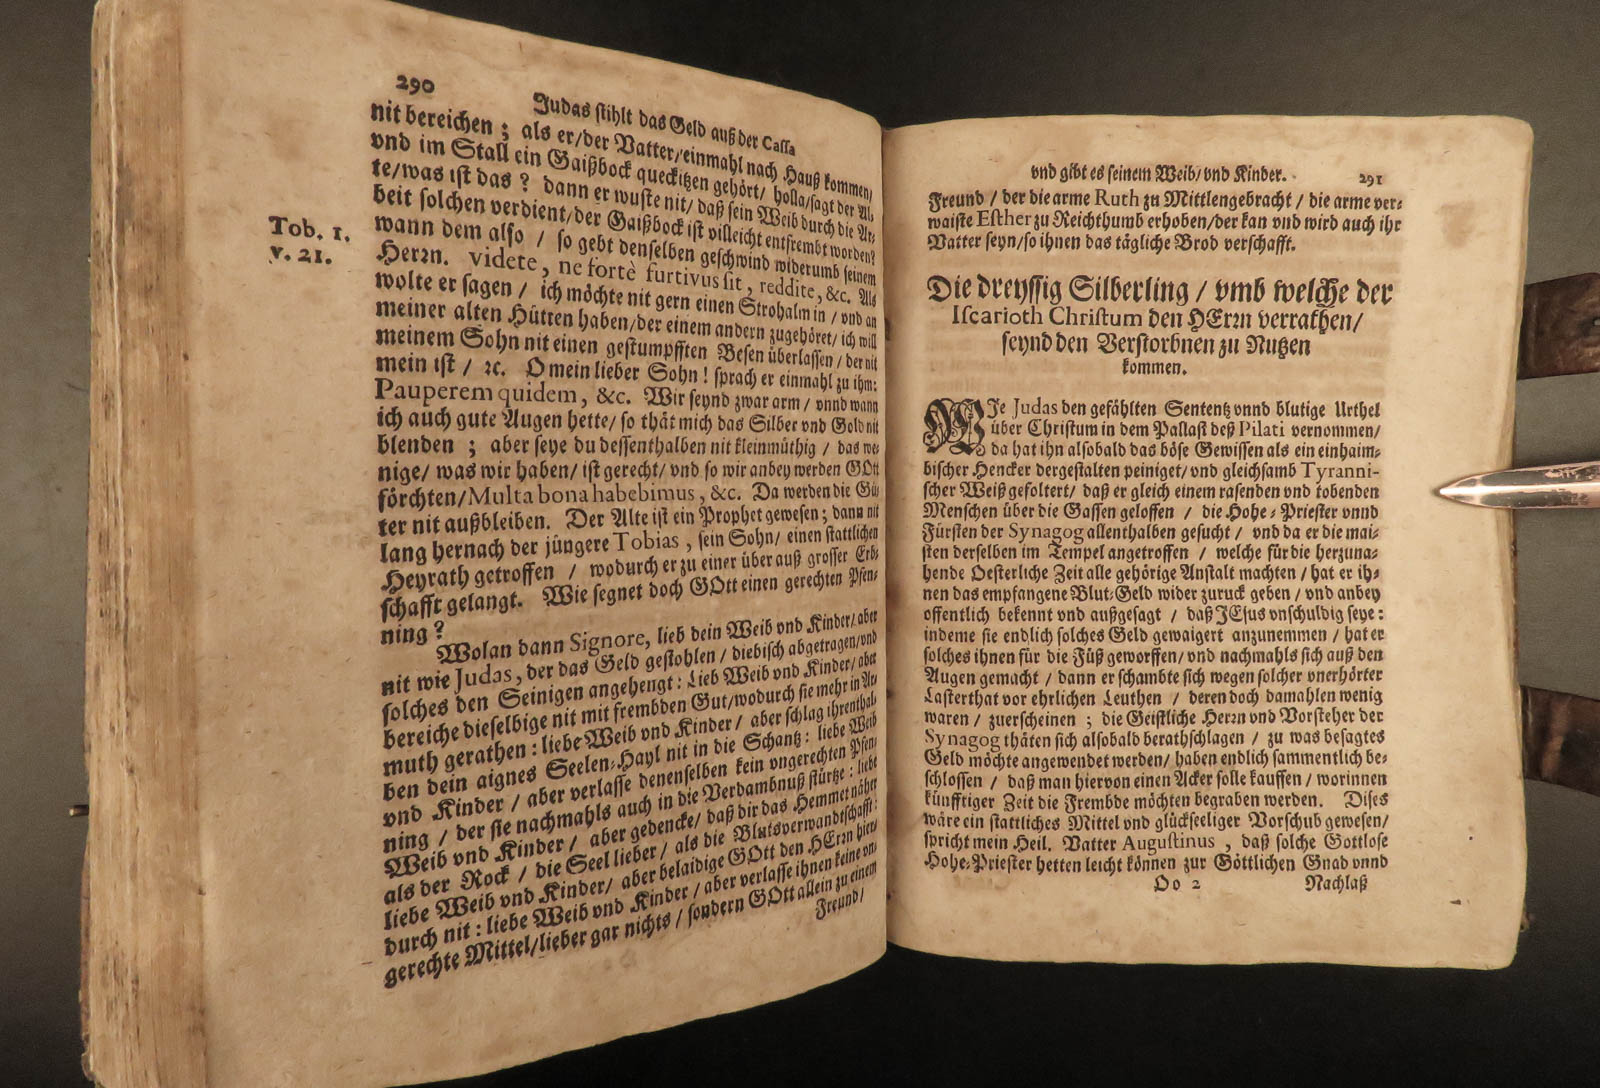 290
Judas stihlt das Geld auß der Cassa
nit bereichen ; als er/der Vatter/einmahl nach Hauß kommen/
vnd im Stall ein Gaißbock queckitzen gehört/ holla/sagt der Al-
te/was ist das ? dann er wuste nit/ daß sein Weib durch die Ar-
beit solchen verdient/der Gaißbock ist villeicht entfrembt worden?
wann dem also / so gebt denselben geschwind widerumb seinem
Herrn. videte, ne fortè furtivus sit, reddite, &c. Als
wolte er sagen / ich möchte nit gern einen Strohalm in / vnd an
meiner alten Hütten haben/der einem andern zugehöret/ ich will
meinem Sohn nit einen gestumpfften Besen überlassen / der nit
mein ist / ꝛc. O mein lieber Sohn ! sprach er einmahl zu ihm:
Pauperem quidem, &c. Wir seynd zwar arm / vnnd wann
ich auch gute Augen hette/ so thät mich das Silber vnd Gold nit
blenden ; aber seye du dessenthalben nit kleinmüthig / das we-
nige/ was wir haben/ ist gerecht/ vnd so wir anbey werden GOtt
förchten/Multa bona habebimus, &c. Da werden die Gü-
ter nit außbleiben. Der Alte ist ein Prophet gewesen ; dann nit
lang hernach der jüngere Tobias, sein Sohn/ einen stattlichen
Heyrath getroffen / wodurch er zu einer über auß grosser Erb-
schafft gelangt. Wie segnet doch GOtt einen gerechten Pfen-
ning ?
Wolan dann Signore, lieb dein Weib vnd Kinder/ aber
nit wie Judas, der das Geld gestohlen / diebisch abgetragen/vnd
solches den Seinigen angehengt : Lieb Weib vnd Kinder/ aber
bereiche dieselbige nit mit frembden Gut/wodurch sie mehr in Ar-
muth gerathen : liebe Weib vnd Kinder / aber schlag ihrenthal-
ben dein aignes Seelen-Hayl nit in die Schantz : liebe Weib
vnd Kinder / aber verlasse denenselben kein vngerechten Pfen-
ning / der sie nachmahls auch in die Verdambnuß stürtze : liebe
Weib vnd Kinder / aber gedencke/ daß dir das Hemmet näher
als der Rock / die Seel lieber / als die Blutsverwandtschafft :
liebe Weib vnd Kinder/ aber belaidige GOtt den HErrn hier-
durch nit : liebe Weib vnd Kinder / aber verlasse ihnen keine vn-
gerechte Mittel/lieber gar nichts / sondern GOtt allein zu einem
Freund/
Tob. 1.
v. 21.
vnd gibt es seinem Weib/ vnd Kinder.
291
Freund / der die arme Ruth zu Mittlen gebracht / die arme ver-
waiste Esther zu Reichthumb erhoben/der kan vnd wird auch ihr
Vatter seyn/so ihnen das tägliche Brod verschafft.
Die dreyssig Silberling / vmb welche der
Iscarioth Christum den HErrn verrathen/
seynd den Verstorbnen zu Nutzen
kommen.
WJe Judas den gefählten Sententz vnnd blutige Urthel
über Christum in dem Pallast deß Pilati vernommen/
da hat ihn alsobald das böse Gewissen als ein einhaim-
bischer Hencker dergestalten peiniget/ vnd gleichsamb Tyranni-
scher Weiß gefoltert/ daß er gleich einem rasenden vnd tobenden
Menschen über die Gassen geloffen / die Hohe-Priester vnnd
Fürsten der Synagog allenthalben gesucht / vnd da er die mai-
sten derselben im Tempel angetroffen / welche für die herzuna-
hende Oesterliche Zeit alle gehörige Anstalt machten / hat er ih-
nen das empfangene Blut-Geld wider zuruck geben / vnd anbey
offentlich bekennt vnd außgesagt / daß JEsus vnschuldig seye :
indeme sie endlich solches Geld gewaigert anzunemmen / hat er
solches ihnen für die Füß geworffen/ vnd nachmahls sich auß den
Augen gemacht / dann er schambte sich wegen solcher vnerhörter
Lasterthat vor ehrlichen Leuthen / deren doch damahlen wenig
waren / zuerscheinen ; die Geistliche Herrn vnd Vorsteher der
Synagog thäten sich alsobald berathschlagen / zu was besagtes
Geld möchte angewendet werden/ haben endlich sammentlich be-
schlossen / daß man hiervon einen Acker solle kauffen / worinnen
künfftiger Zeit die Frembde möchten begraben werden. Dises
wäre ein stattliches Mittel vnd glückseeliger Vorschub gewesen/
spricht mein Heil. Vatter Augustinus, daß solche Gottlose
Hohe-Priester hetten leicht können zur Göttlichen Gnad vnnd
Oo 2
Nachlaß